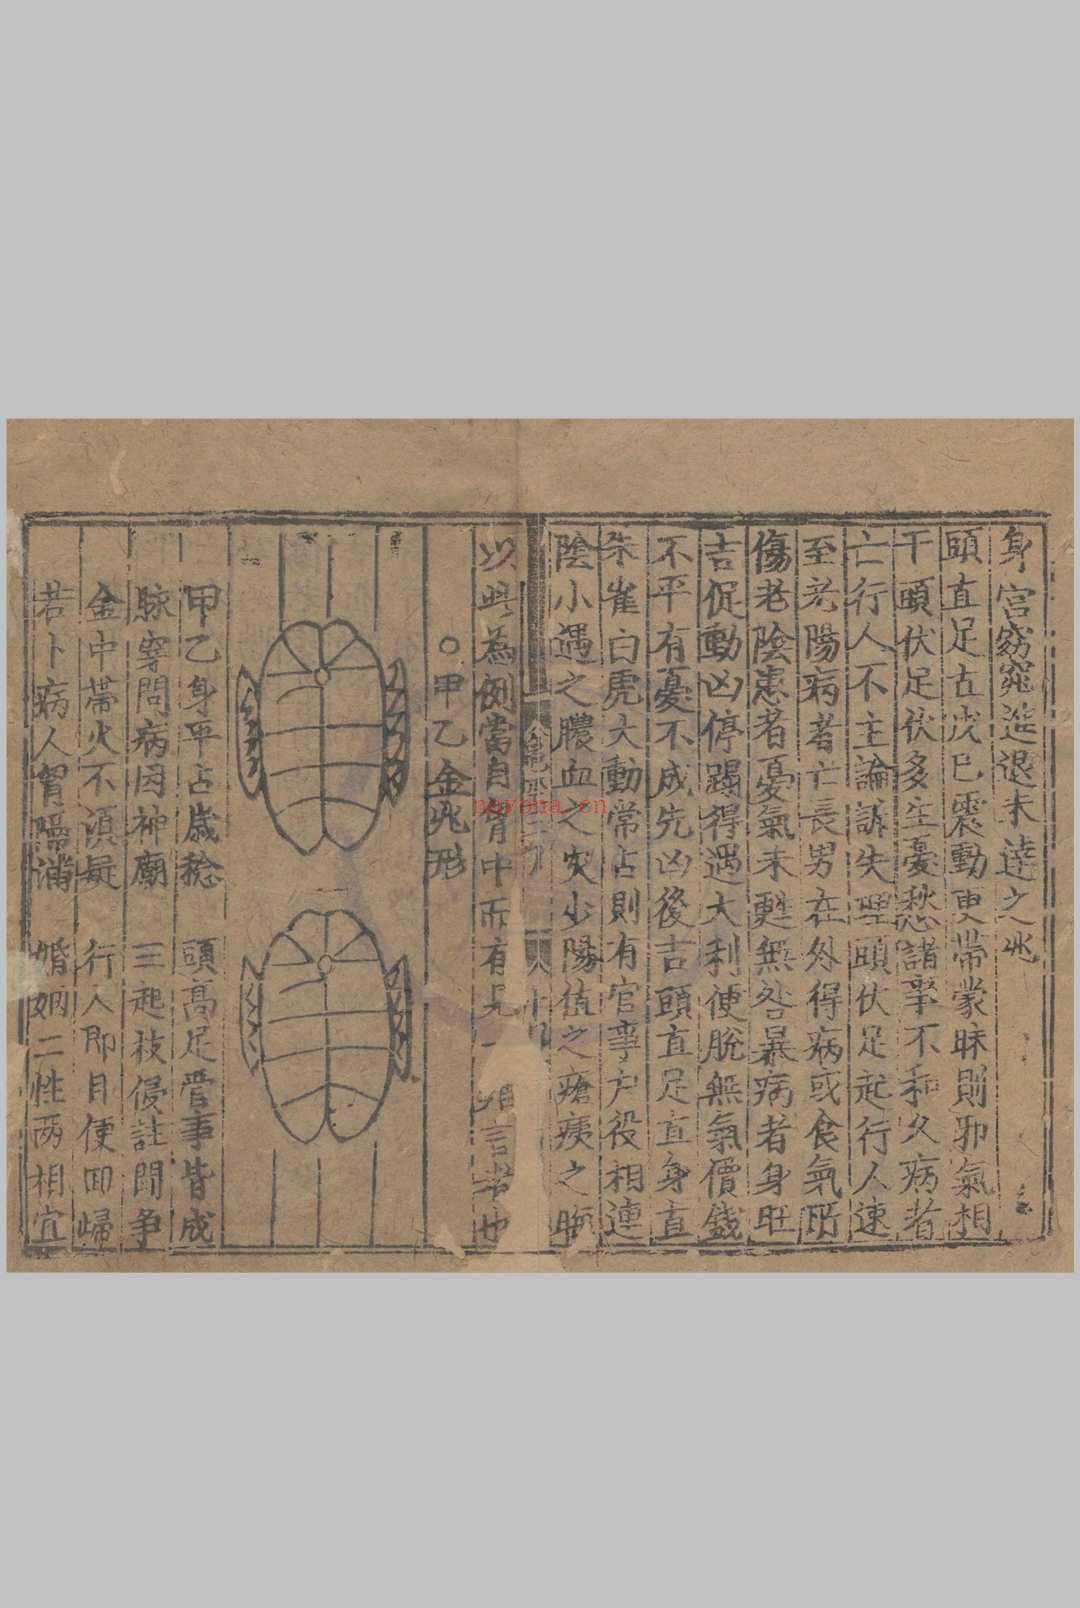 身宫窈窕進退未逹之兆
頭直足古戊巳震動更帶蒙昧則邪氣相
干頭伏足伏多生憂愁諸事不和久病者
亡行人不主論訴失理頭伏足起行人速
至老陽病者亡長男在外得病或食氣所
傷老陰患者憂氣未甦無咎暴病者身旺
吉促動凶停蠲得遇大利便脫無氣價錢
不平有憂不成先凶後吉頭直足直身直
朱雀白虎大動常占則有官事户役相連
陰小遇之膿血之灾少陽值之瘡痍之
以此為例當自胷中而有見 言也
○甲乙金兆形
甲乙身平占歲稔 頭高足 事皆成
脉穿問病因神廟 三起枝侵訟問争
金中帶火不湏疑 行人即目便回歸
若卜病人胷 婚姻二性两相宜
nayona.cn